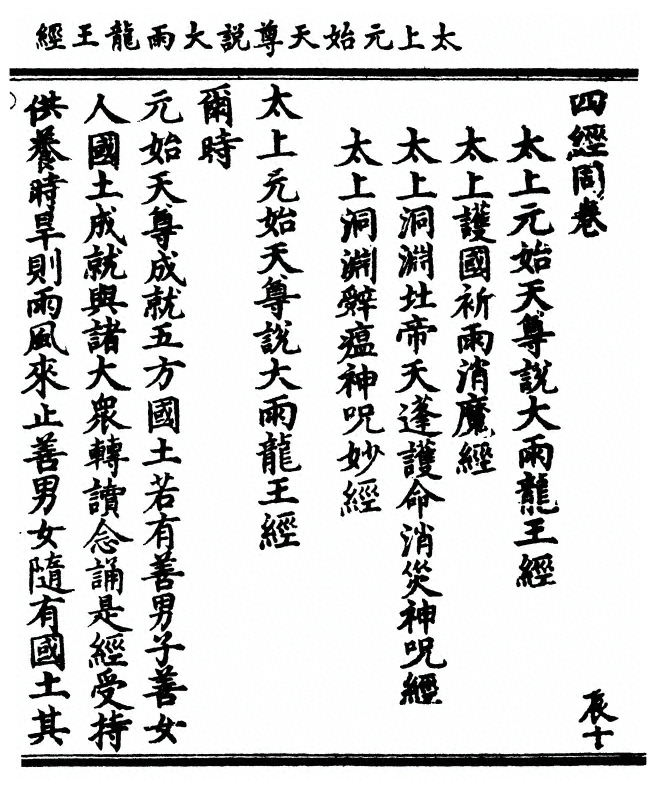 太上元始天尊說大雨龍王經
四經同卷
辰十
太上元始天尊說大雨龍王經
太上護國祈雨消魔經
太上洞淵北帝天蓬護命消災神呪經
太上洞淵辭瘟神呪妙經
太上元始天尊說大雨龍王經
爾時
元始天尊成就五方國土若有善男子善女
人國土成就與諸大衆轉讀念誦是經受持
供養時旱則雨風來止善男女隨有國土其